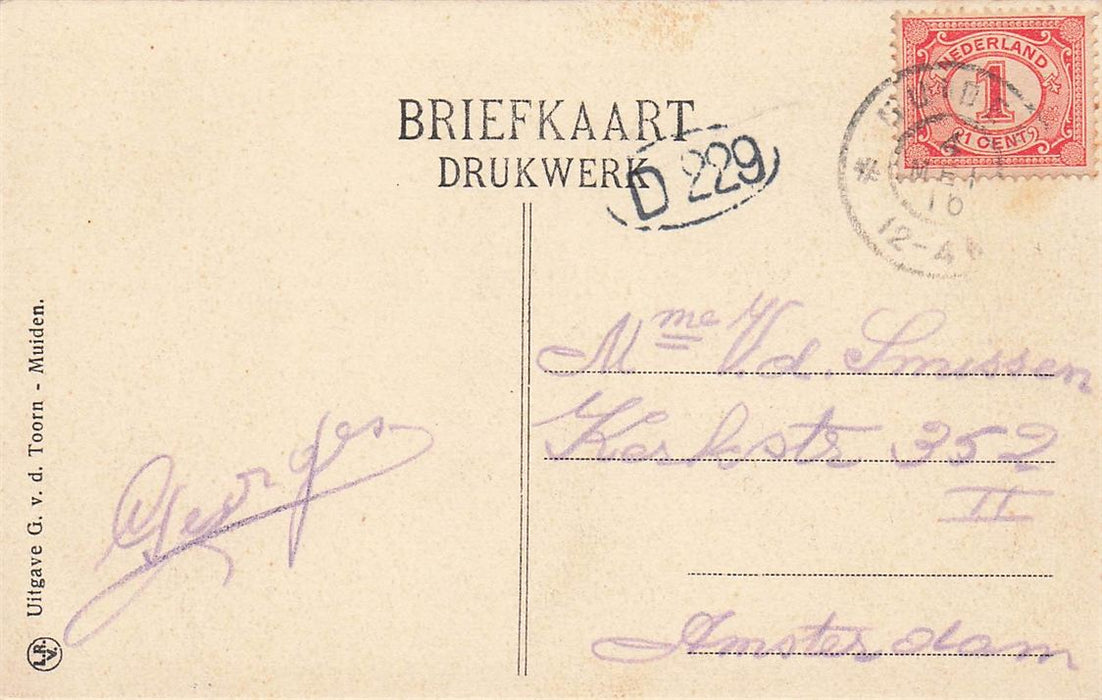 BRIEFKAART
DRUKWERK
D 229
NEDERLAND
1
1 CENT
MEI
16
12-
Mme V. d. Smissen
Kerkstr 352
II
Amsterdam
Georges
Uitgave G. v. d. Toorn - Muiden.
L.R.
V.